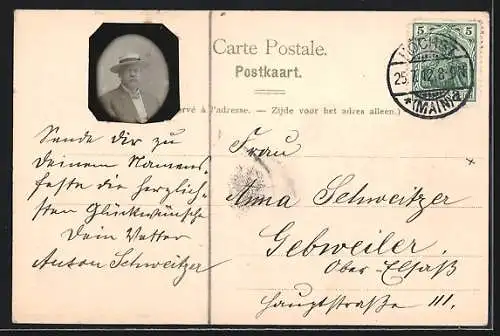 Carte Postale.
Postkaart.
rvé à l'adresse. — Zijde voor het adres alleen.)
5 5
HÖCHST
25.7.
8-9N
*(MAIN)
Sende dir zu
deinem Namens-
feste die herzlich-
sten Glückwünsche
Dein Vetter
Anton Schweitzer
Frau
Anna Schweitzer
Gebweiler.
Ober Elsaß
Hauptstraße 111.